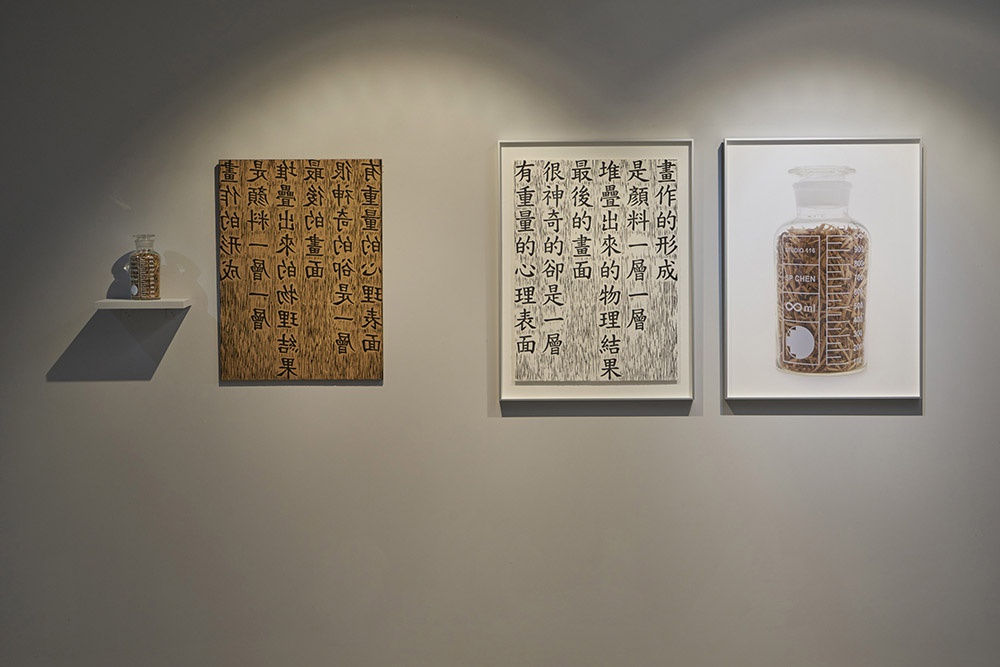 畫作的形成
是顏料一層一層
堆疊出來的物理結果
最後的畫面
很神奇的卻是一層
有重量的心理表面
畫作的形成
是顏料一層一層
堆疊出來的物理結果
最後的畫面
很神奇的卻是一層
有重量的心理表面
STUDIO 116
SP CHEN
∞ ml